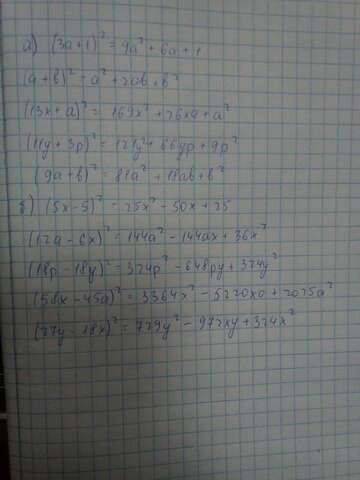 а) (3a+1)² = 9a² + 6a + 1
(a+b)² = a² + 2ab + b²
(13x+a)² = 169x² + 26xa + a²
(11y+3p)² = 121y² + 66yp + 9p²
(9a+b)² = 81a² + 18ab + b²
б) (5x-5)² = 25x² - 50x + 25
(12a-6x)² = 144a² - 144ax + 36x²
(18p-18y)² = 324p² - 648py + 324y²
(58x-45a)² = 3364x² - 5220xa + 2025a²
(27y-18x)² = 729y² - 972xy + 324x²